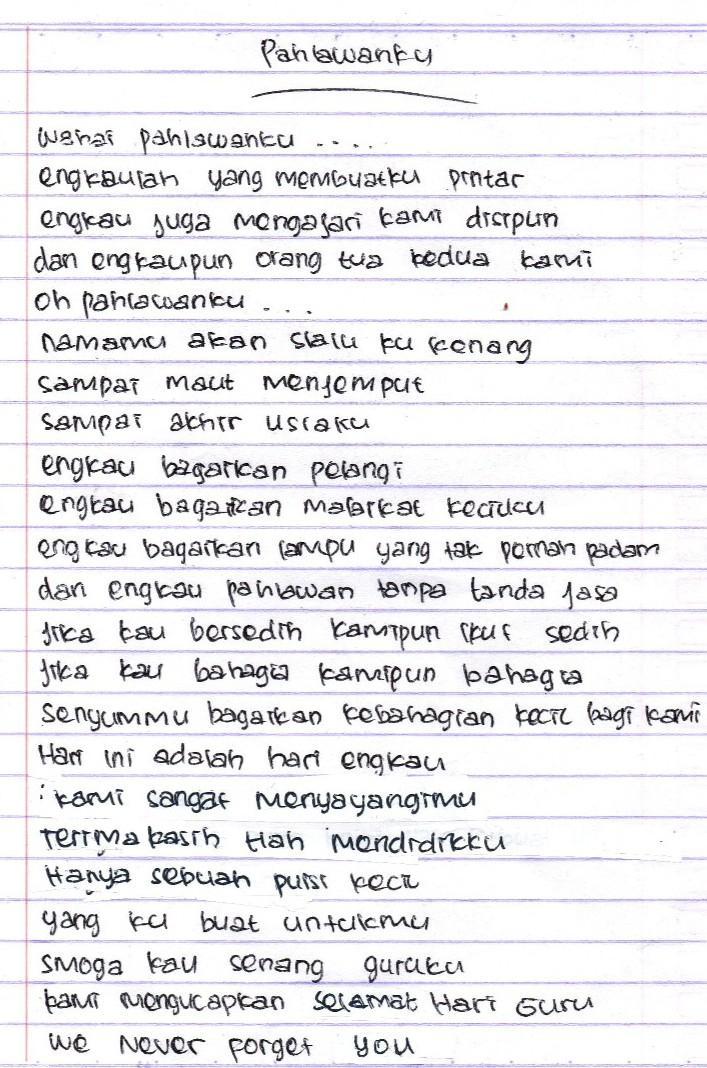 Pahlawanku
wahai pahlawanku ....
engkaulah yang membuatku pintar
engkau juga mengajari kami disiplin
dan engkaupun orang tua kedua kami
oh pahlawanku ...
namamu akan slalu ku kenang
sampai maut menjemput
sampai akhir usiaku
engkau bagaikan pelangi
engkau bagaikan malaikat kecilku
engkau bagaikan lampu yang tak pernah padam
dan engkau pahlawan tanpa tanda jasa
jika kau bersedih kamipun ikut sedih
jika kau bahagia kamipun bahagia
senyummu bagaikan kebahagian kecil bagi kami
Hari ini adalah hari engkau
kami sangat menyayangimu
terima kasih tlah mendidikku
Hanya sebuah puisi kecil
yang ku buat untukmu
smoga kau senang guruku
kami mengucapkan selamat Hari Guru
We Never forget you